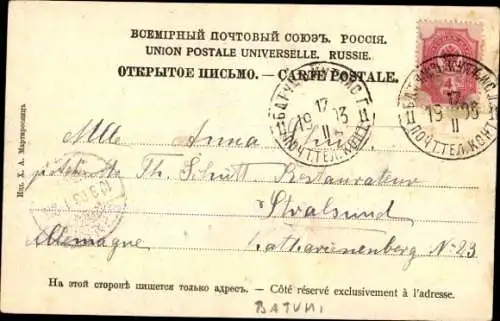 ВСЕМІРНЫЙ ПОЧТОВЫЙ СОЮЗЪ. РОССІЯ.
UNION POSTALE UNIVERSELLE. RUSSIE.
ОТКРЫТОЕ ПИСЬМО. — CARTE POSTALE.
17
19 03
II
ПОЧТ.ТЕЛ.КОНТ.
4
17
19 03
II
ПОЧТ.ТЕЛ.КОНТ.
Mlle Anna
Th. Schütt Restaurateur
Stralsund
Allemagne Catharinenberg No 23
Изд. Х. А. Мартиросянцъ.
На этой сторонѣ пишется только адресъ. — Côté réservé exclusivement à l'adresse.
BATUM